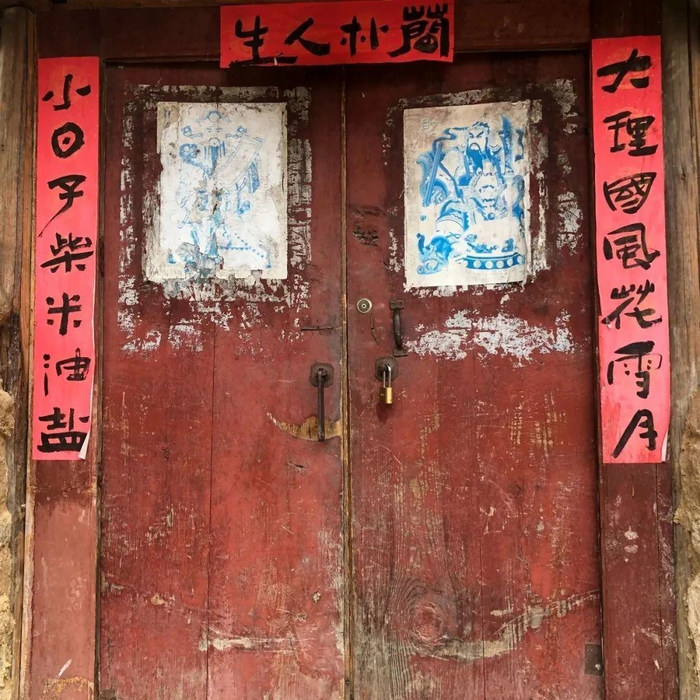 簡朴人生
大理國風花雪月
小日子柴米油盐